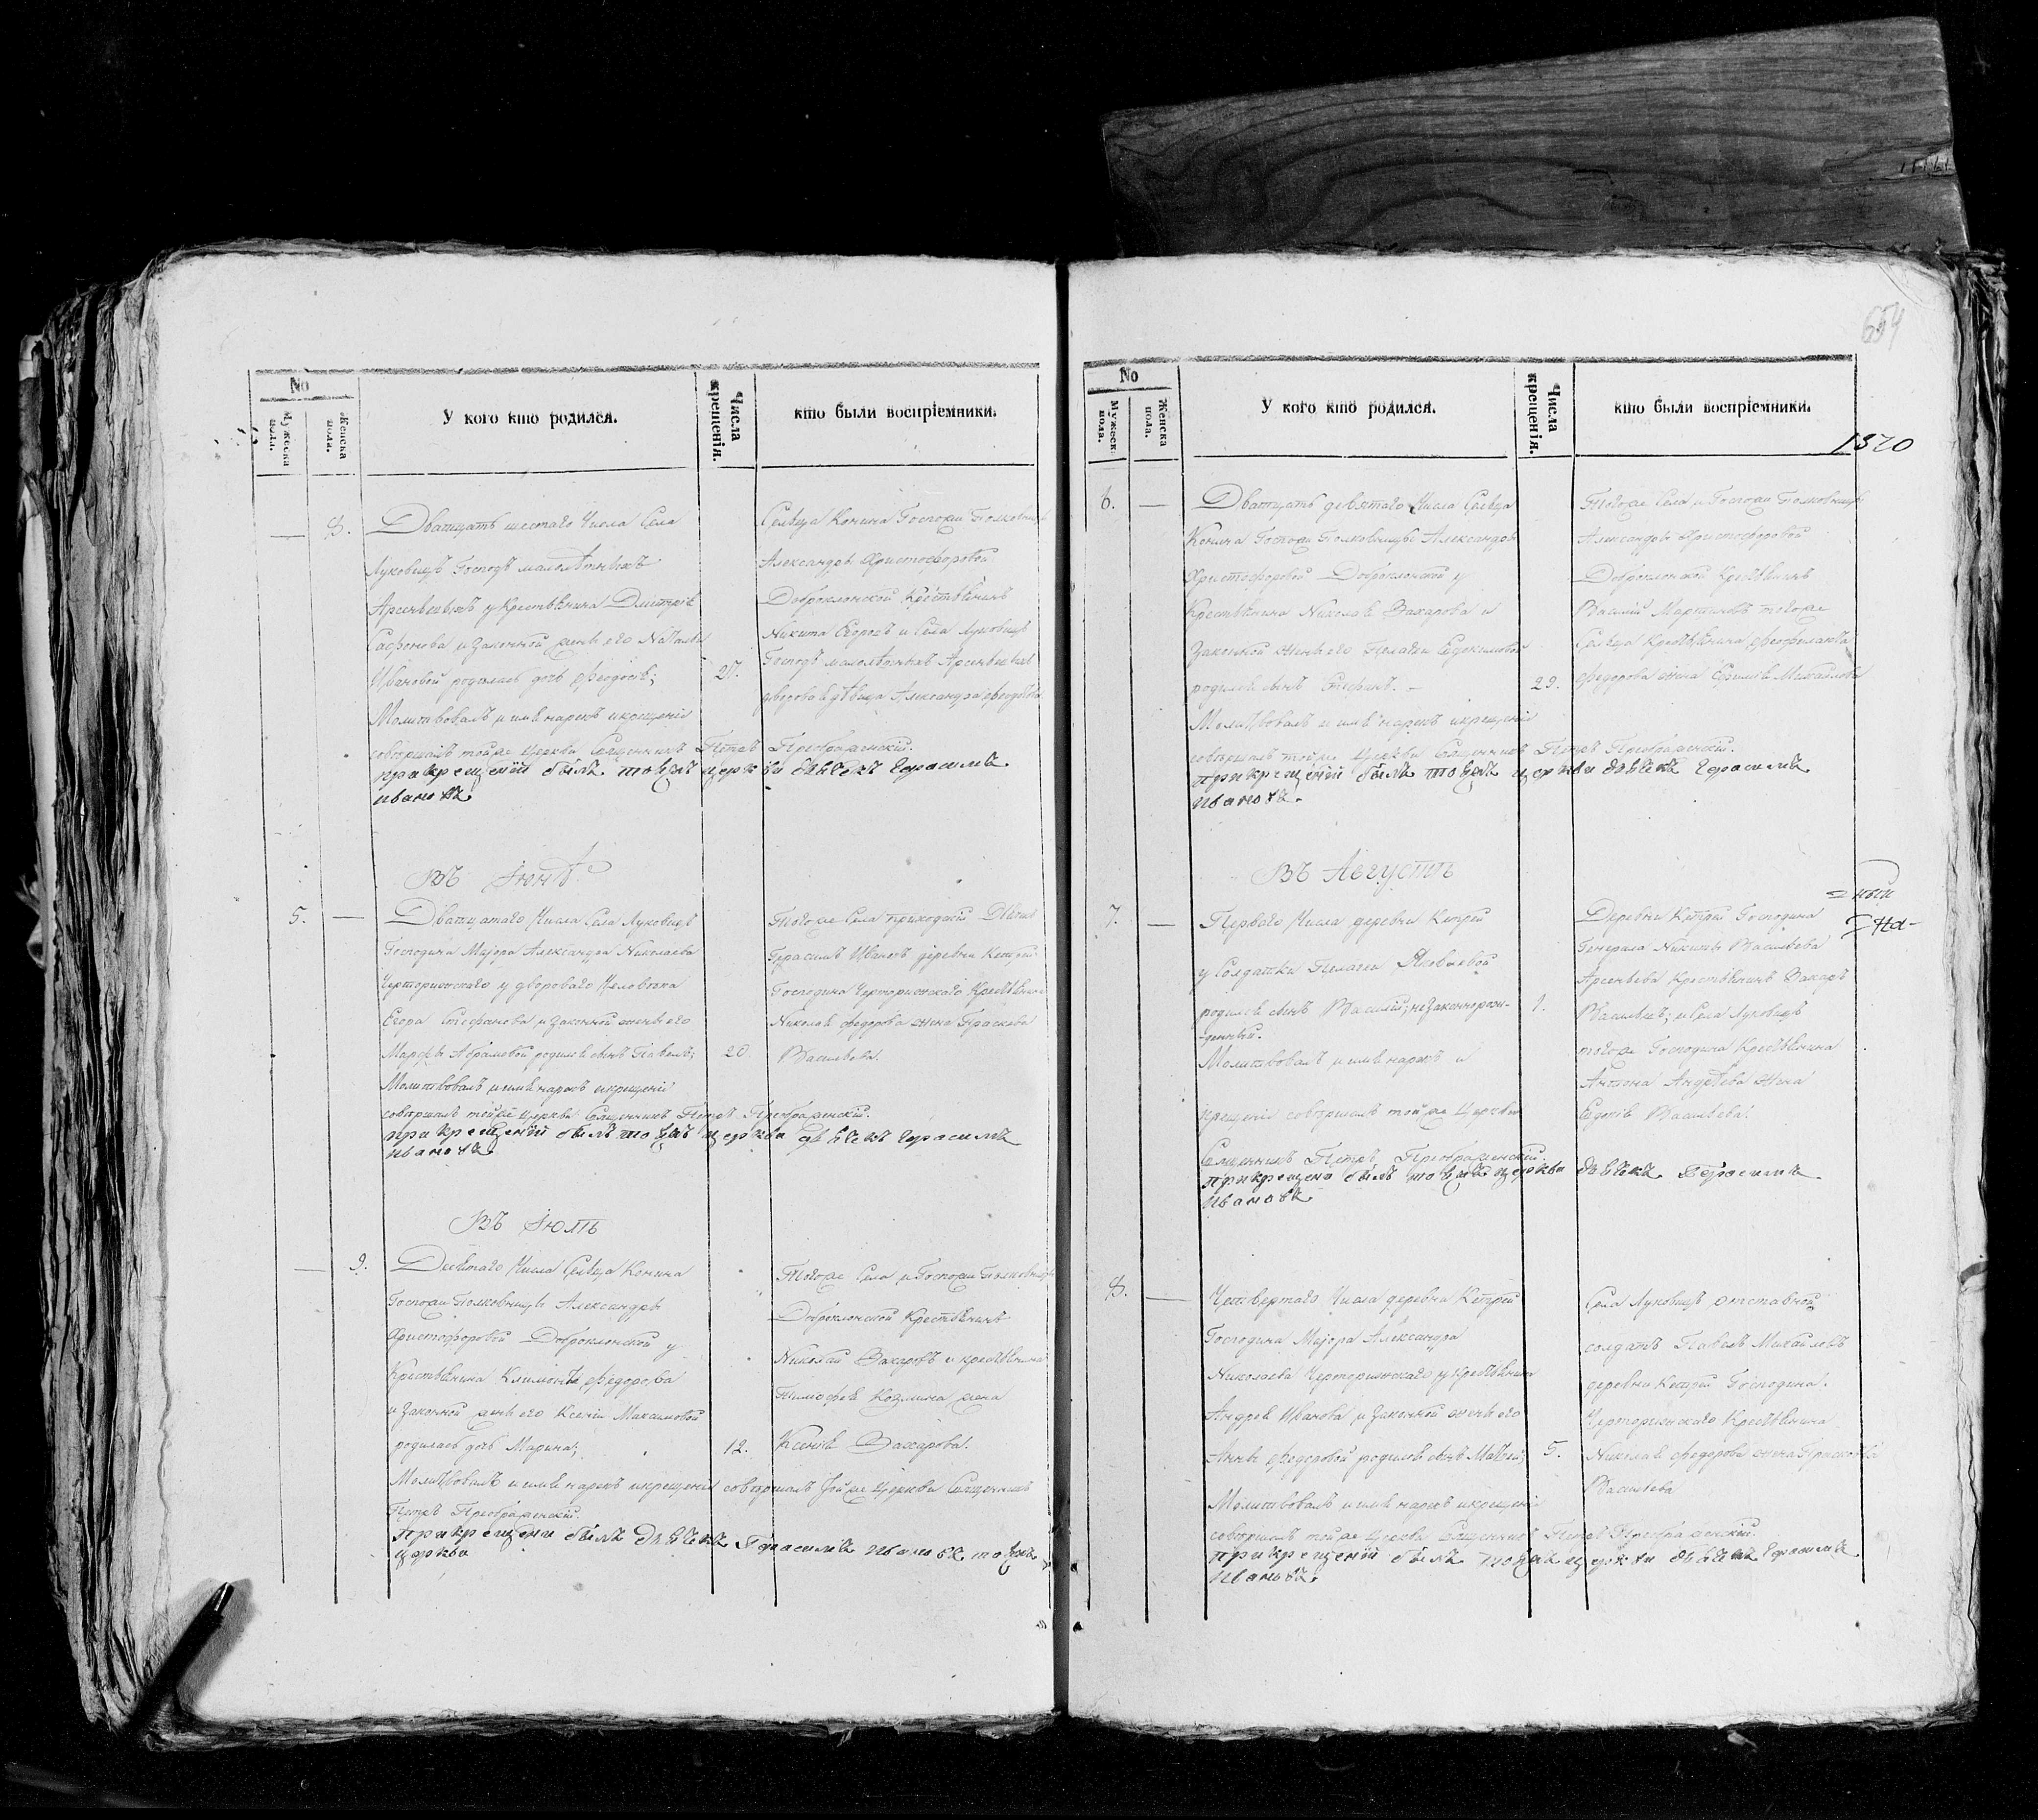 654
No
Мужеска пола.
Женска пола.
У кого кто родился.
Числа крещенія.
кто были воспріемники.
8.
Дватцать шестаго Числа Села
Луковицъ Господъ малолѣтныхъ
Арсеньевыхъ у Крестьянина Дмитрія
Сафонова и Законной жены его Натальи
Ивановой родилась дочь Феодосія;
Молитвовалъ и имя нарекъ и крещеніе
совершалъ тойже Церкви Священникъ Петръ Преображенскій.
при крещеніи былъ тоҍже церкви дьячекъ Герасимъ
Ивановъ
27.
Сельца Конина Госпожи Полковницы
Александры Христофоровой
Доброклонской Крестьянинъ
Никита Егоровъ и Села Луковицъ
Господъ малолѣтныхъ Арсеньевыхъ
дворовая дѣвица Александра
Въ Іюнѣ
5.
Дватцатаго Числа Села Луковицъ
Господина Маіора Александра Николаева
Черторижскаго у двороваго Человека
Егора Стефанова и Законной жены его
Марфы Абрамовой родился сынъ Павелъ;
Молитвовалъ и имя нарекъ и крещеніе
совершалъ тойже Церкви Священникъ Петръ Преображенскій.
при крещеніи былъ церкви дьячекъ Герасимъ
Ивановъ
20.
Тогоже Села приходскій Дьячекъ
Герасимъ Ивановъ деревни Кетрей
Господина Черторижскаго Крестьянина
Николая Федорова жена Прасковья
Васильева.
Въ Іюлѣ
9.
Девятаго Числа Сельца Конина
Госпожи Полковницы Александры
Христофоровой Доброклонской у
Крестьянина Климонта Федорова
и Законной жены его Ксеніи Максимовой
родилась дочь Марина;
Молитвовалъ и имя нарекъ и крещеніе совершалъ тойже Церкви Священникъ
Петръ Преображенскій.
при крещеніи былъ дьячекъ Герасимъ Ивановъ
церкви
12.
Тогоже Села и Госпожи Полковницы
Доброклонской Крестьянинъ
Николай Захаровъ и крестьянина
Тимофея Козмина жена
Ксенія Захарова.
No
Мужеска пола.
Женска пола.
У кого кто родился.
Числа крещенія.
кто были воспріемники.
1820
6.
Дватцать девятаго Числа Сельца
Конина Госпожи Полковницы Александры
Христофоровой Доброклонской у
Крестьянина Николая Захарова и
Законной жены его Пелагеи Евдокимовой
родился сынъ Стефанъ.
Молитвовалъ и имя нарекъ и крещеніе
совершалъ тойже Церкви Священникъ Петръ Преображенскій.
при крещеніи былъ церкви дьячекъ Герасимъ
Ивановъ.
29.
Тогоже Села и Госпожи Полковницы
Александры Христофоровой
Доброклонской Крестьянинъ
Василій Мартиновъ тогоже
Сельца Крестьянина Феофилакта
Федорова жена Михайлова
Въ Августѣ
7.
Перваго Числа деревни Кетрей
у Солдатки Пелагеи Яковлевой
родился сынъ Василій; незаконнорож-
-денный.
Молитвовалъ и имя нарекъ и
крещеніе совершалъ тойже Церкви
Священникъ Петръ Преображенскій.
при крещени былъ церкви дьячекъ Герасимъ
Ивановъ
1.
Деревни Кетрей Господина
Генерала Никиты Васильева
Арсеньева Крестьянинъ Захаръ
Васильевъ; и Села Луковицъ
тогоже Господина Крестьянина
Антона Андрѣева жена
Евдокія Васильева.
8.
Четвертаго Числа деревни Кетрей
Господина Маіора Александра
Николаева Черторижскаго у Крестьянина
Андрея Иванова и Законной жены его
Анны Федоровой родился сынъ Матвей;
Молитвовалъ и имя нарекъ и крещеніе
совершалъ тойже Церкви Священникъ Петръ Преображенскій.
при крещеніи былъ церкви дьячекъ Герасимъ
Ивановъ.
5.
Села Луковицъ отставной
солдатъ Павелъ Михайловъ
деревни Кетрей Господина
Черторижскаго Крестьянина
Николая Федорова жена Прасковья
Васильева